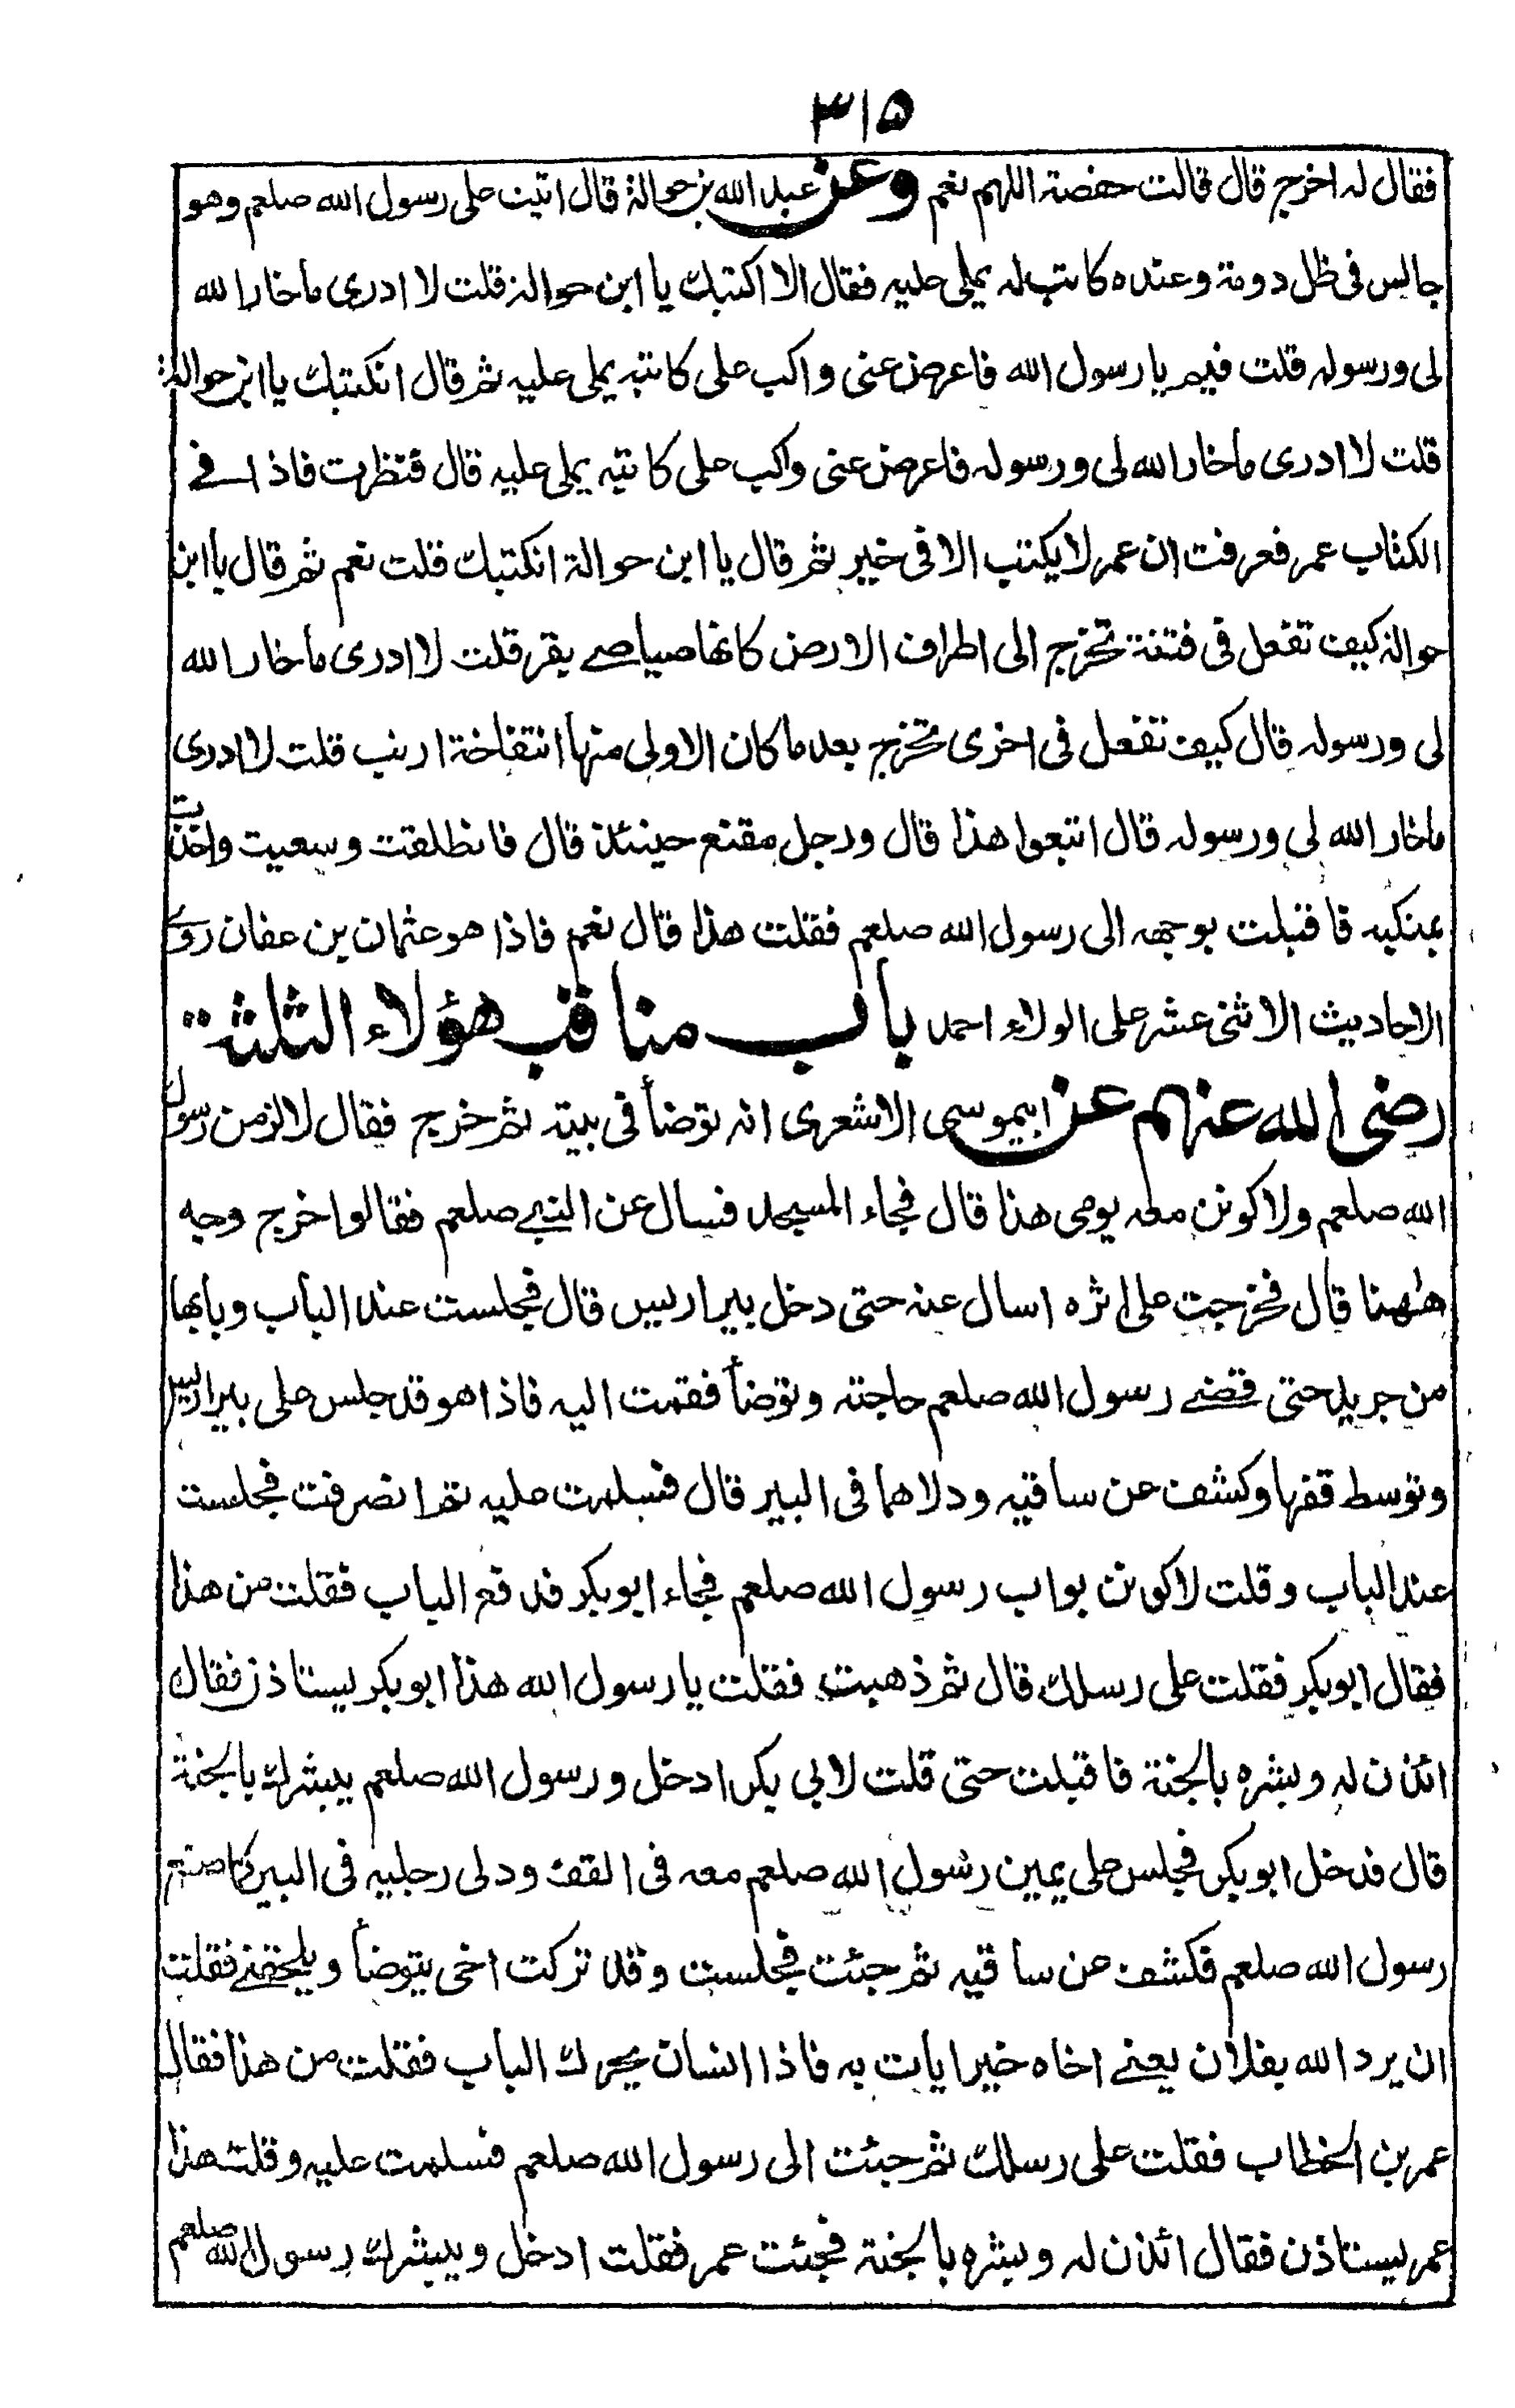 ٣١٥
فقال له اخرج قال قالت حفصة اللهم نعم وعن عبد الله بن حوالة قال اتيت على رسول الله صلعم وهو
جالس فى ظل دومة وعنده كاتب له يملى عليه فقال الا اكتبك يا ابن حوالة قلت لا ادرى ما خار الله
لى ورسوله قلت فيم يا رسول الله فاعرض عنى واكب على كاتبه يملى عليه ثم قال انكتبك يا ابن حوالة
قلت لا ادرى ما خار الله لى ورسوله فاعرض عنى واكب على كاتبه يملى عليه قال فنظرت فاذا فے
الكتاب عمر فعرفت ان عمر لا يكتب الا فى خير ثم قال يا ابن حوالة انكتبك قلت نعم ثم قال يا ابن
حوالة كيف تفعل فى فتنة تخرج الى اطراف الارض كانها صياصے بقر قلت لا ادرى ما خار الله
لى ورسوله قال كيف تفعل فى اخرى تخرج بعد ما كان الاولى منها انتفاخة ارنب قلت لا ادرى
ما خار الله لى ورسوله قال اتبعوا هذا قال ورجل مقنع حينئذ قال فانطلقت وسعيت واخذت
بمنكبه فاقبلت بوجهه الى رسول الله صلعم فقلت هذا قال نعم فاذا هو عثمان بن عفان روے
الاحاديث الاثنى عشر على الولاء احمد باب مناقب هؤلاء الثلثة
رضى الله عنهم عن ابيموسى الاشعرى انه توضأ فى بيته ثم خرج فقال لالزمن رسول
الله صلعم ولاكونن معه يومى هذا قال فجاء المسجد فسال عن النبے صلعم فقالوا خرج وجه
ههنا قال فخرجت على اثره اسال عنه حتى دخل بير اريس قال فجلست عند الباب وبابها
من جريد حتى قضے رسول الله صلعم حاجته وتوضأ فقمت اليه فاذا هو قد جلس على بير اريس
وتوسط قفها وكشف عن ساقيه ودلاهما فى البير قال فسلمت عليه ثم انصرفت فجلست
عند الباب وقلت لاكونن بواب رسول الله صلعم فجاء ابو بكر فدفع الباب فقلت من هذا
فقال ابو بكر فقلت على رسلك قال ثم ذهبت فقلت يا رسول الله هذا ابو بكر يستاذن فقال
ائذن له وبشره بالجنة فاقبلت حتى قلت لابى بكر ادخل ورسول الله صلعم يبشرك بالجنة
قال فدخل ابو بكر فجلس على يمين رسول الله صلعم معه فى القف ودلى رجليه فى البير كما صنع
رسول الله صلعم فكشف عن ساقيه ثم جئت فجلست وقد تركت اخى يتوضأ ويلحقنے فقلت
ان يرد الله بفلان يعنے اخاه خيرا يات به فاذا انسان يحرك الباب فقلت من هذا فقال
عمر بن الخطاب فقلت على رسلك ثم جئت الى رسول الله صلعم فسلمت عليه وقلت هذا
عمر يستاذن فقال ائذن له وبشره بالجنة فجئت عمر فقلت ادخل ويبشرك رسول الله صلعم